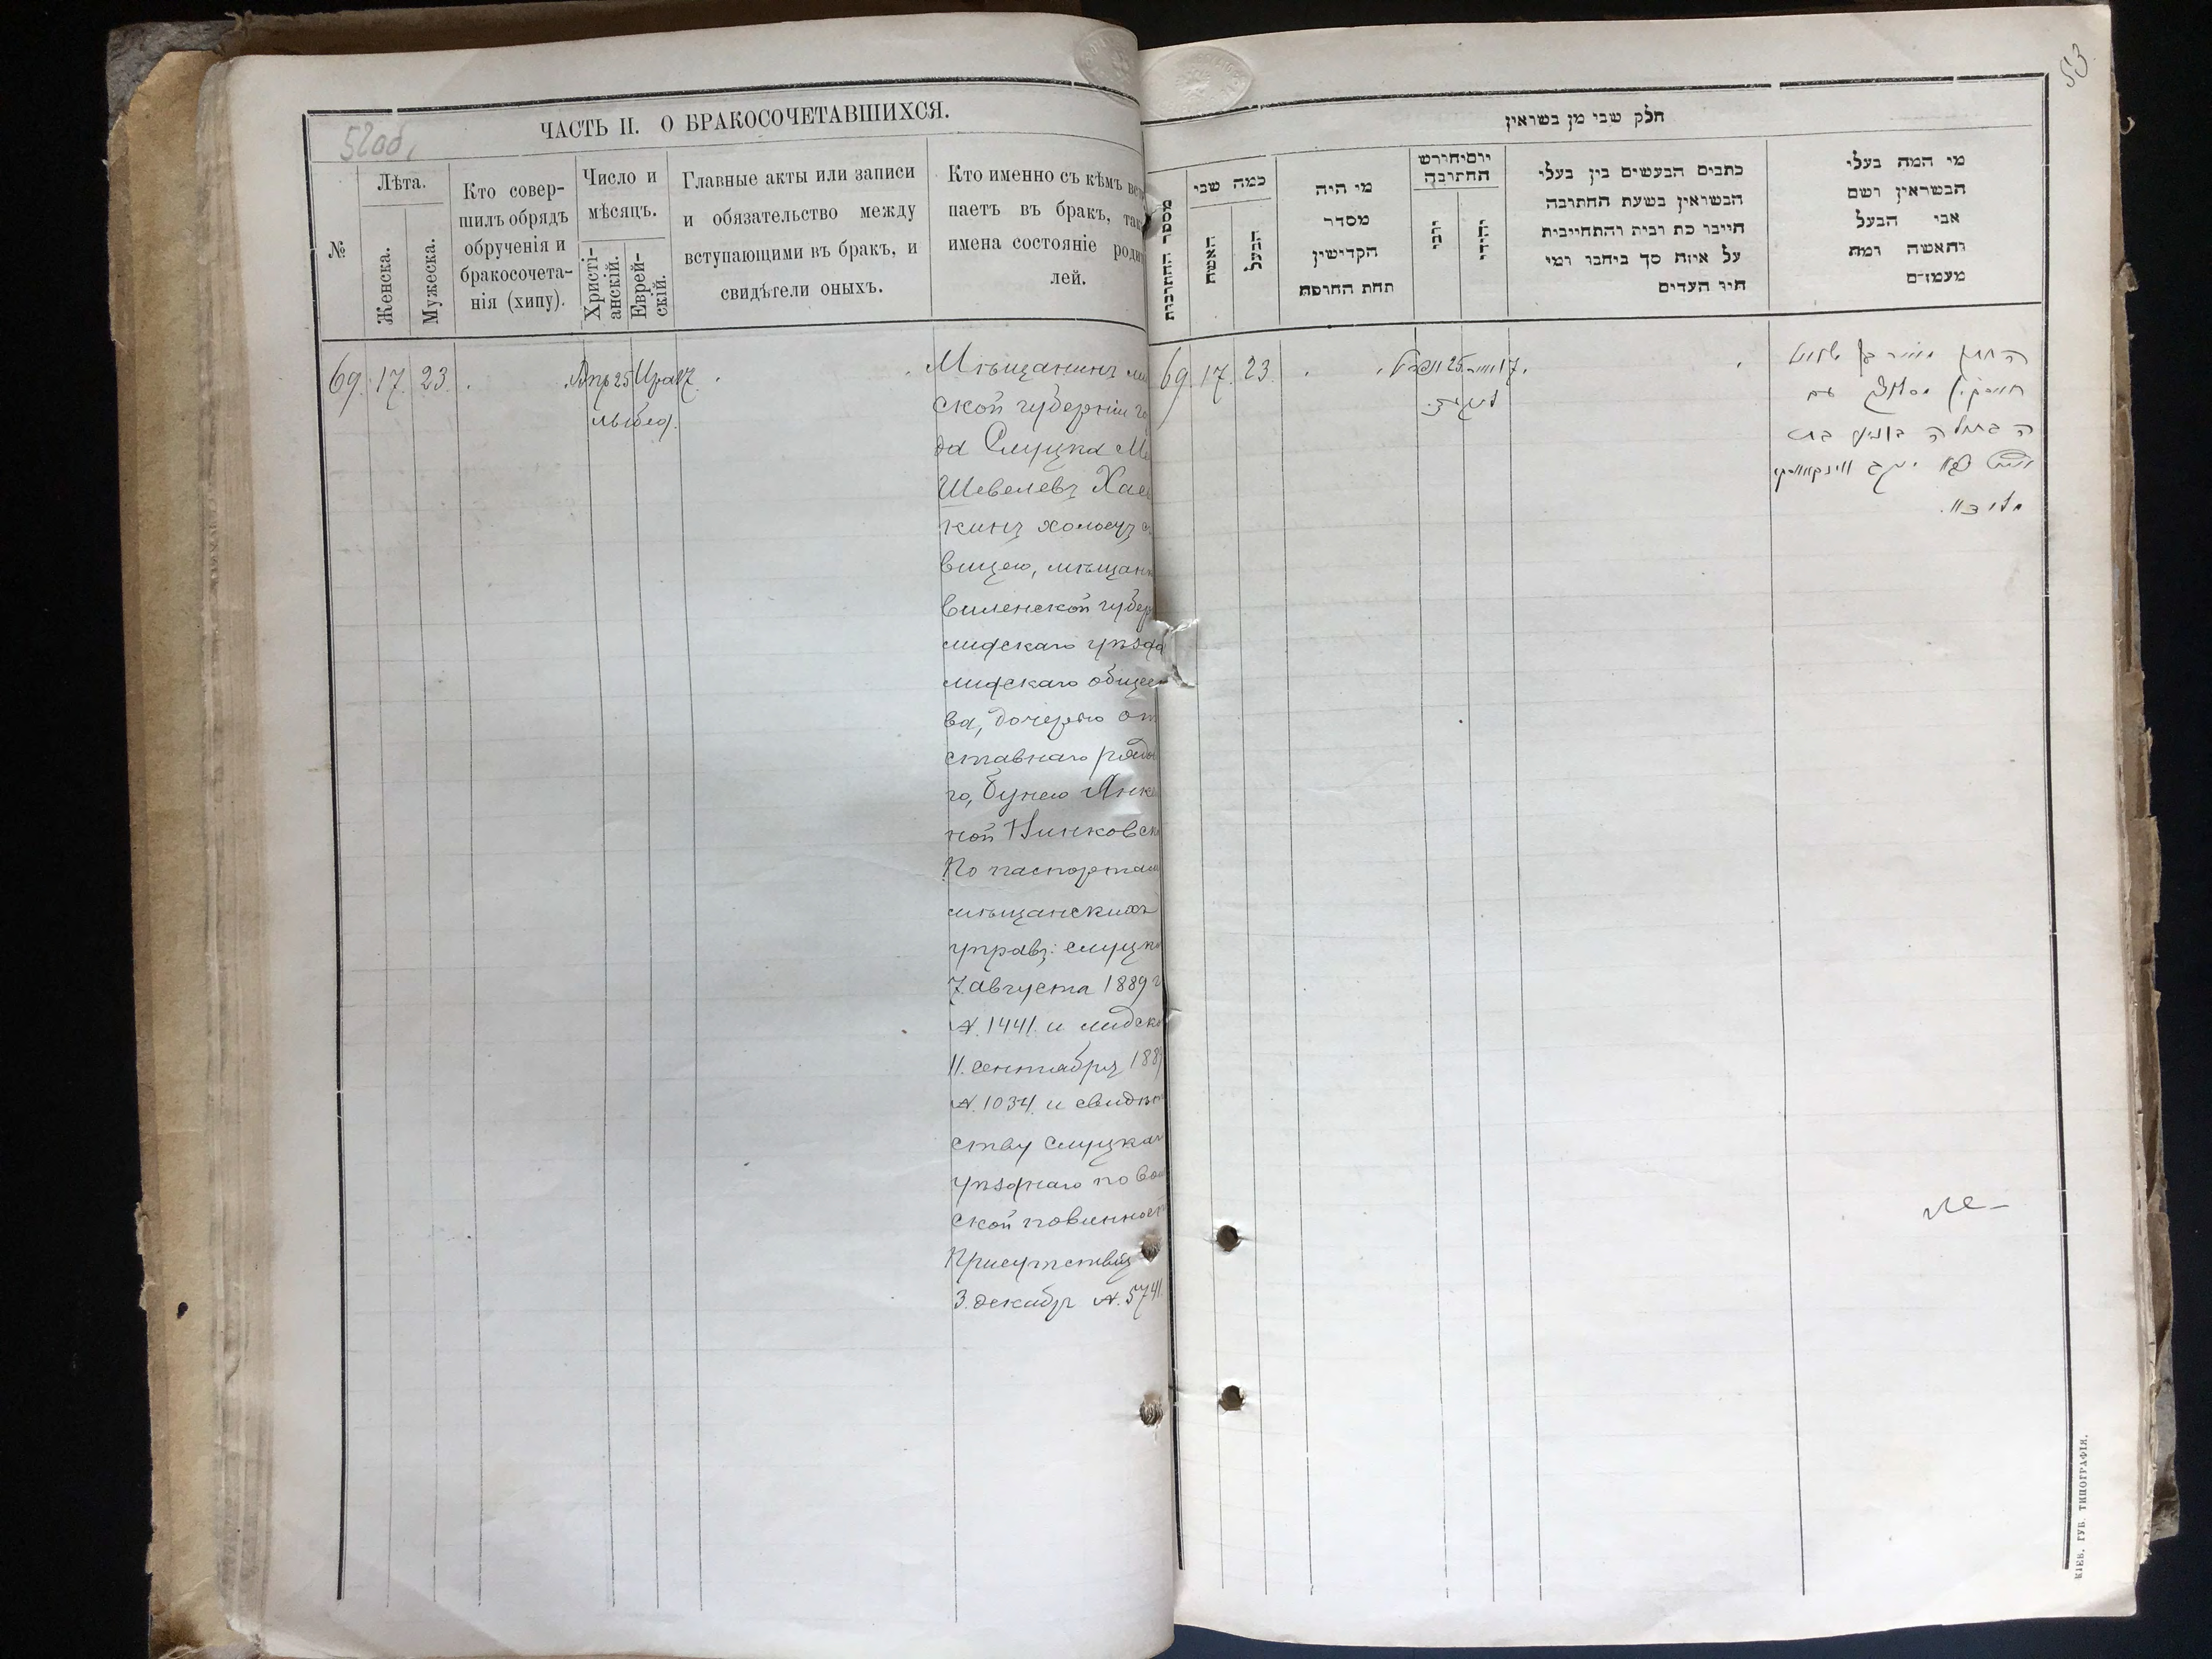 52об.
ЧАСТЬ II. О БРАКОСОЧЕТАВШИХСЯ.
№
Лѣта.
Женска.
Мужеска.
Кто совер-
шилъ обрядъ
обрученія и
бракосочета-
нія (хипу).
Число и
мѣсяцъ.
Христі-
анскій.
Еврей-
скій.
Главные акты или записи
и обязательство между
вступающими въ брак, и
свидѣтели оныхъ.
Кто именно съ кѣмъ всту
паетъ въ бракъ, так
имена состояніе родит
лей.
69. 17. 23. Апр 25 Іяра 17.
Мѣщанинъ ми
ской губерніи го
да Слуцка
Шевелевъ Хае
кинъ холосъ
вицею, мѣщанк
виленской губер
лидскаго уѣзда
лидскаго общест
ва, дочерью от
ставнаго рядо
го, Бунею Янке
ной Винковск
По паспортам
мѣщанскихъ
управъ: слуцко
7. августа 1889 г
№. 1441. и лидско
11. сентября 188
№. 1034. и свидѣт
ству слуцкаг
уѣзднаго по Вои
ской повинност
Присутствія
3. декабр №. 5741.
53
חלק שבי מן בשראין
מספר החתובות
כמה שבי
האשה
הבעל
מי היה
מסדר
הקדישין
תחת החופה
יום וחורש
החתובה
יהודי
כתבים הבעשים בין בעלי
הבשראין בשעת החתובה
חייבו כת וביה והתחייבית
על איזה סך ביחבו ומי
חיו העדים
מי המה בעלי
הבשראין ושם
אבי הבעל
והאשה ומה
מעמדם
69. 17. 23. 25 אפריל 17.
החתן מאיר בן
עם
הבתולה בוניא בת
יעקב ווינקאווסקי
КІЕВ. ГУБ. ТИПОГРАФІЯ.